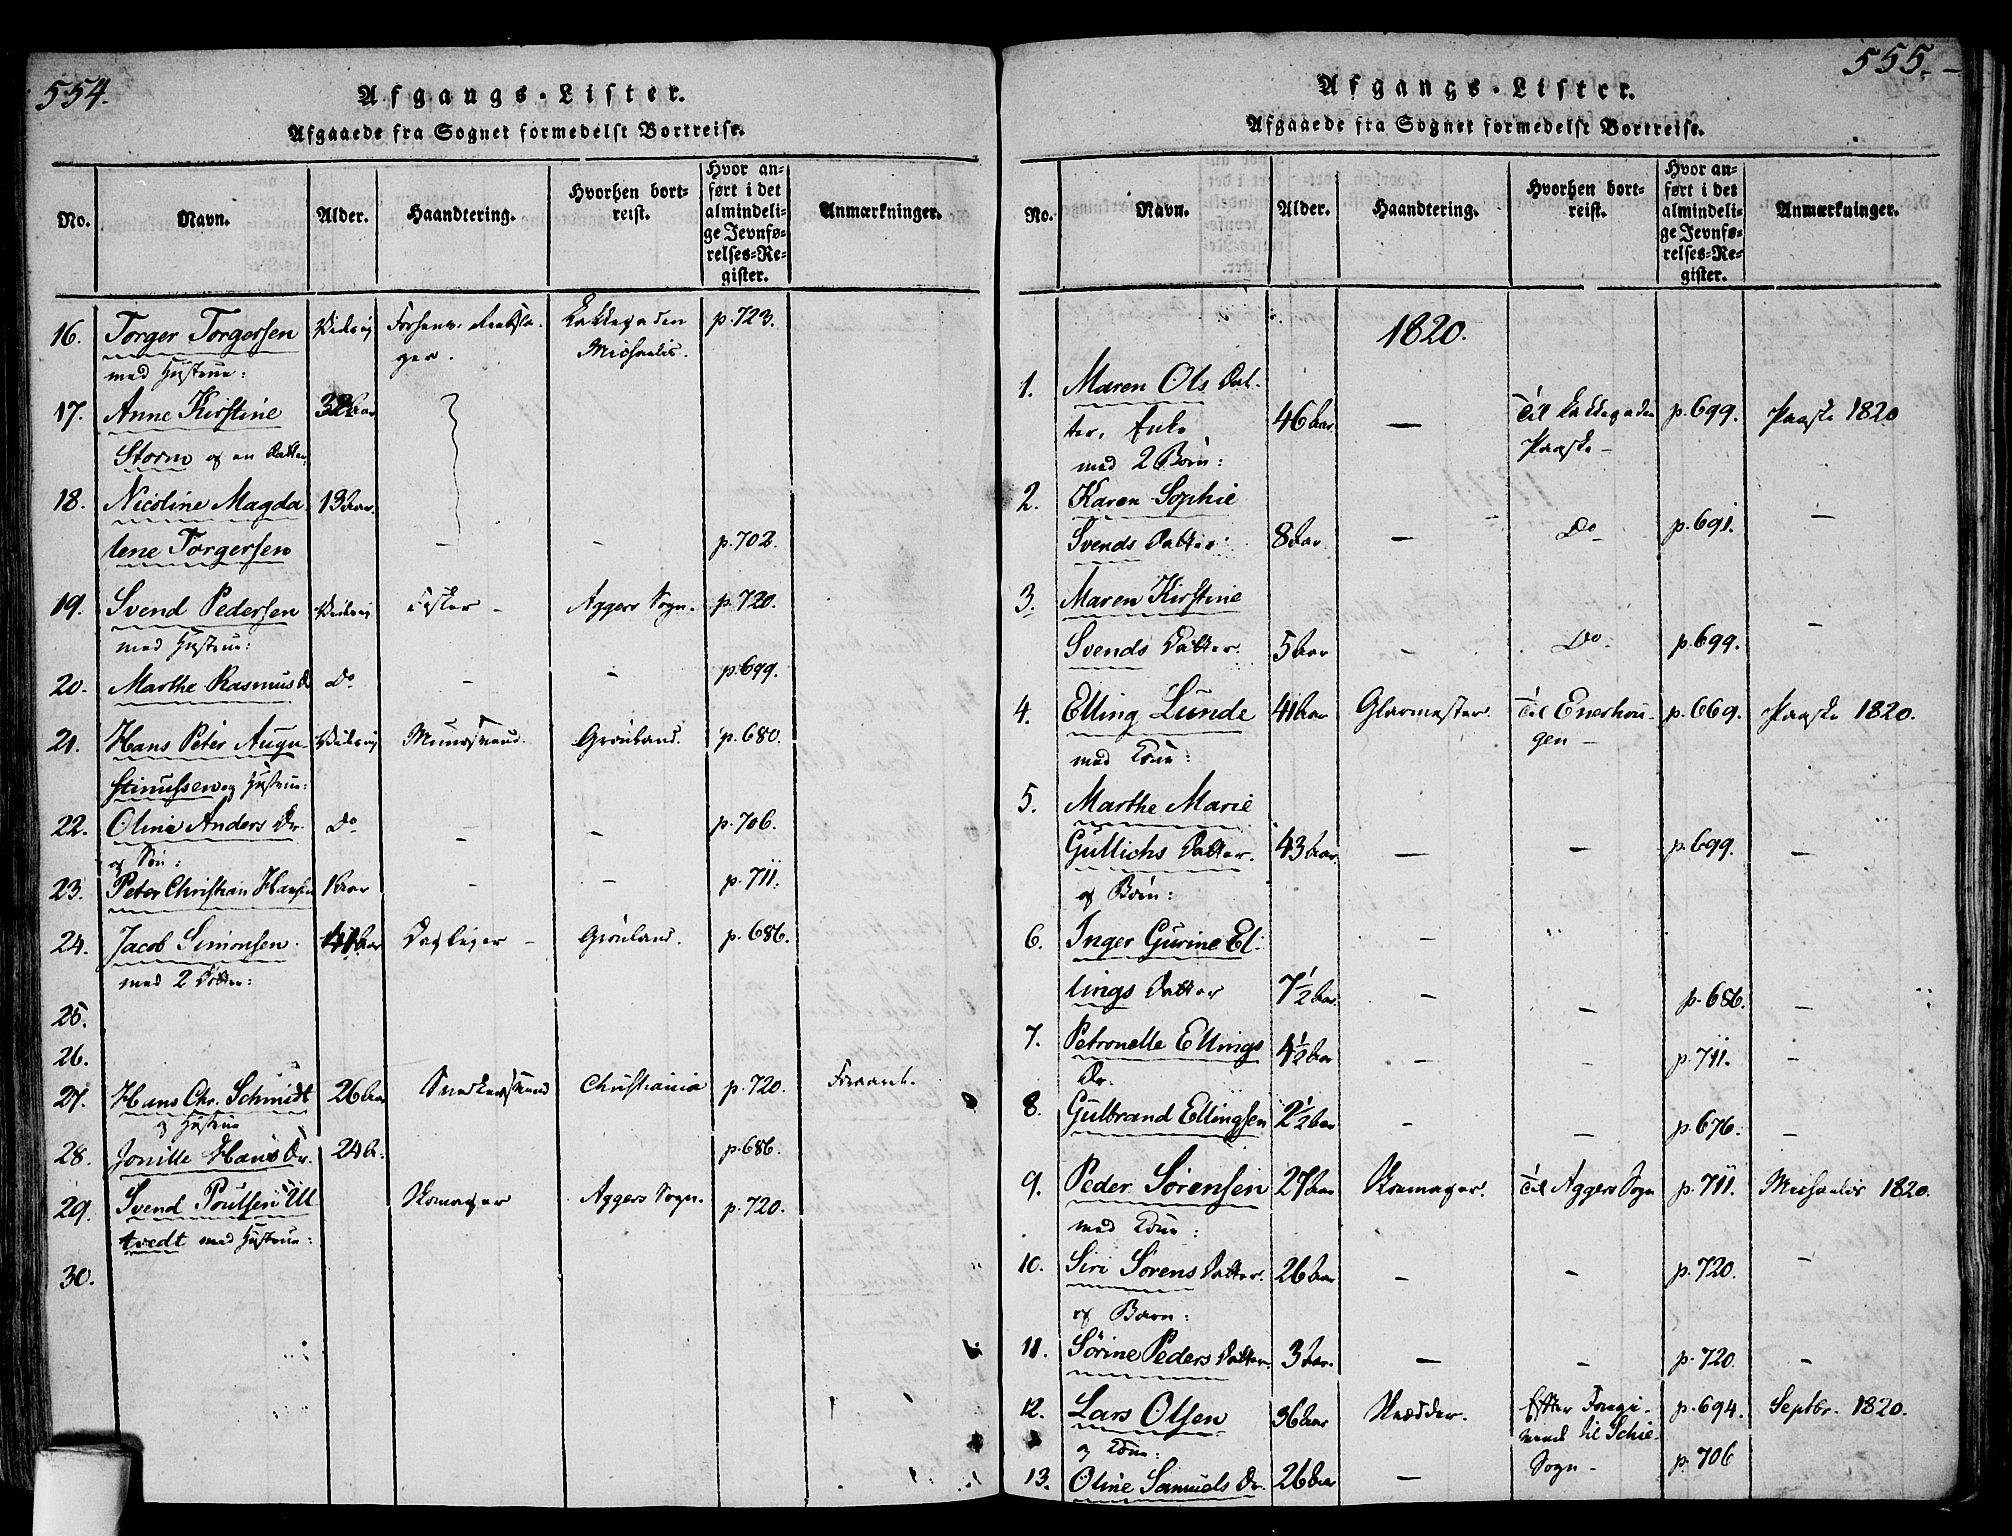 554.
Afgangs-Lister.
Afgaaede fra Sognet formedelst Bortreise.
No. Navn. Alder. Haandtering. Hvorhen bortreist. Hvor anført i det almindelige Jevnførelses-Register. Anmærkninger.
16. Torger Torgersen p. 723.
med Hustrue: Michaelis.
17. Anne Kirstine 32 Aar
Storm og en Datter
18. Nicoline Magda 13 Aar.
lene Torgersen — — p. 702.
19. Svend Pedersen Fisker — Aggers Sogn. p. 720.
med Hustrue:
20. Marthe Rasmus D Do — — p. 699.
21. Hans Peter Augu Grönland. p. 680.
stinussen og Hustrue:
22. Oline Anders Dr. Do — — p. 706.
og Søn:
23. Peter Christian Hansen 1 Aar — — p. 711.
24. Jacob Simonsen. 41 Aar Grönland. p. 686.
med 2 Døttre:
25.
26.
27. Hans Chr. Schmidt 26 Aar Snedkersvend Christiania p. 720.
og Hustrue
28. Jonille Hans Dr. 24 A. p. 686.
29. Svend Poulsen Ul Skomager Aggers Sogn. p. 720.
tvedt med Hustrue:
30.
555.
Afgangs-Lister.
Afgaaede fra Sognet formedelst Bortreise.
No. Navn. Alder. Haandtering. Hvorhen bortreist. Hvor anført i det almindelige Jevnførelses-Register. Anmærkninger.
1820.
1. Maren Ols Dat-
ter, Enke 46 Aar. — Til Lakkegaden p. 699. Paaske 1820
med 2 Børn: Paaske —
2. Karen Sophie
Svends Datter 8 Aar. — Do p. 691. —
3. Maren Kirstine
Svends Datter. 5 Aar — Do. p. 699. —
4. Elling Lunde 41 Aar Glarmester. Til Enerhou- p. 669. Paaske 1820.
med Kone: gen —
5. Marthe Marie
Gullichs Datter. 43 Aar. — — p. 699. —
og Børn:
6. Inger Gurine El- —
lings Datter 7½ Aar. — — p. 686. —
7. Petronelle Ellings 4½ Aar — — p. 711. —
Dr.
8. Gulbrand Ellingsen 2½ Aar — — p. 676. —
9. Peder Sørensen 27 Aar Skomager. Til Aggers Sogn p. 711. Michaelis 1820.
med Kone:
10. Siri Sørens Datter. 26 Aar — — p. 720. —
og Barn:
11. Sørine Peders Datter. 3 Aar. — — p. 720. —
12. Lars Olsen 36 Aar Skrædder. Efter Forgi- p. 694. Septbr. 1820.
og Kone: vende til Schie-
13. Oline Samuels Dr. 26 Aar — Sogn — p. 706